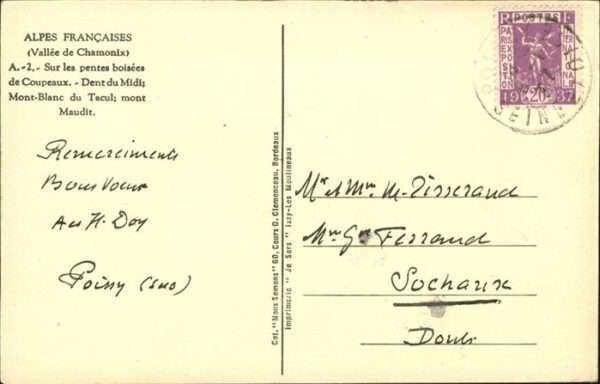 ALPES FRANÇAISES
(Vallée de Chamonix)
A.-2, - Sur les pentes boisées
de Coupeaux. - Dent du Midi;
Mont-Blanc du Tacul; mont
Maudit.
Remerciements
Bons Voeux
Poissy
Cat. "Nous Semons" 60, Cours G. Clemenceau, Bordeaux
Imprimerie "Je Sers" Issy-Les Moulineaux
RF
POSTES
PARIS EXPOSITION
INTERNATIONALE
1937
SEINE
Mr et Mme M. Tisserand
Ferrand
Sochaux
Doubs